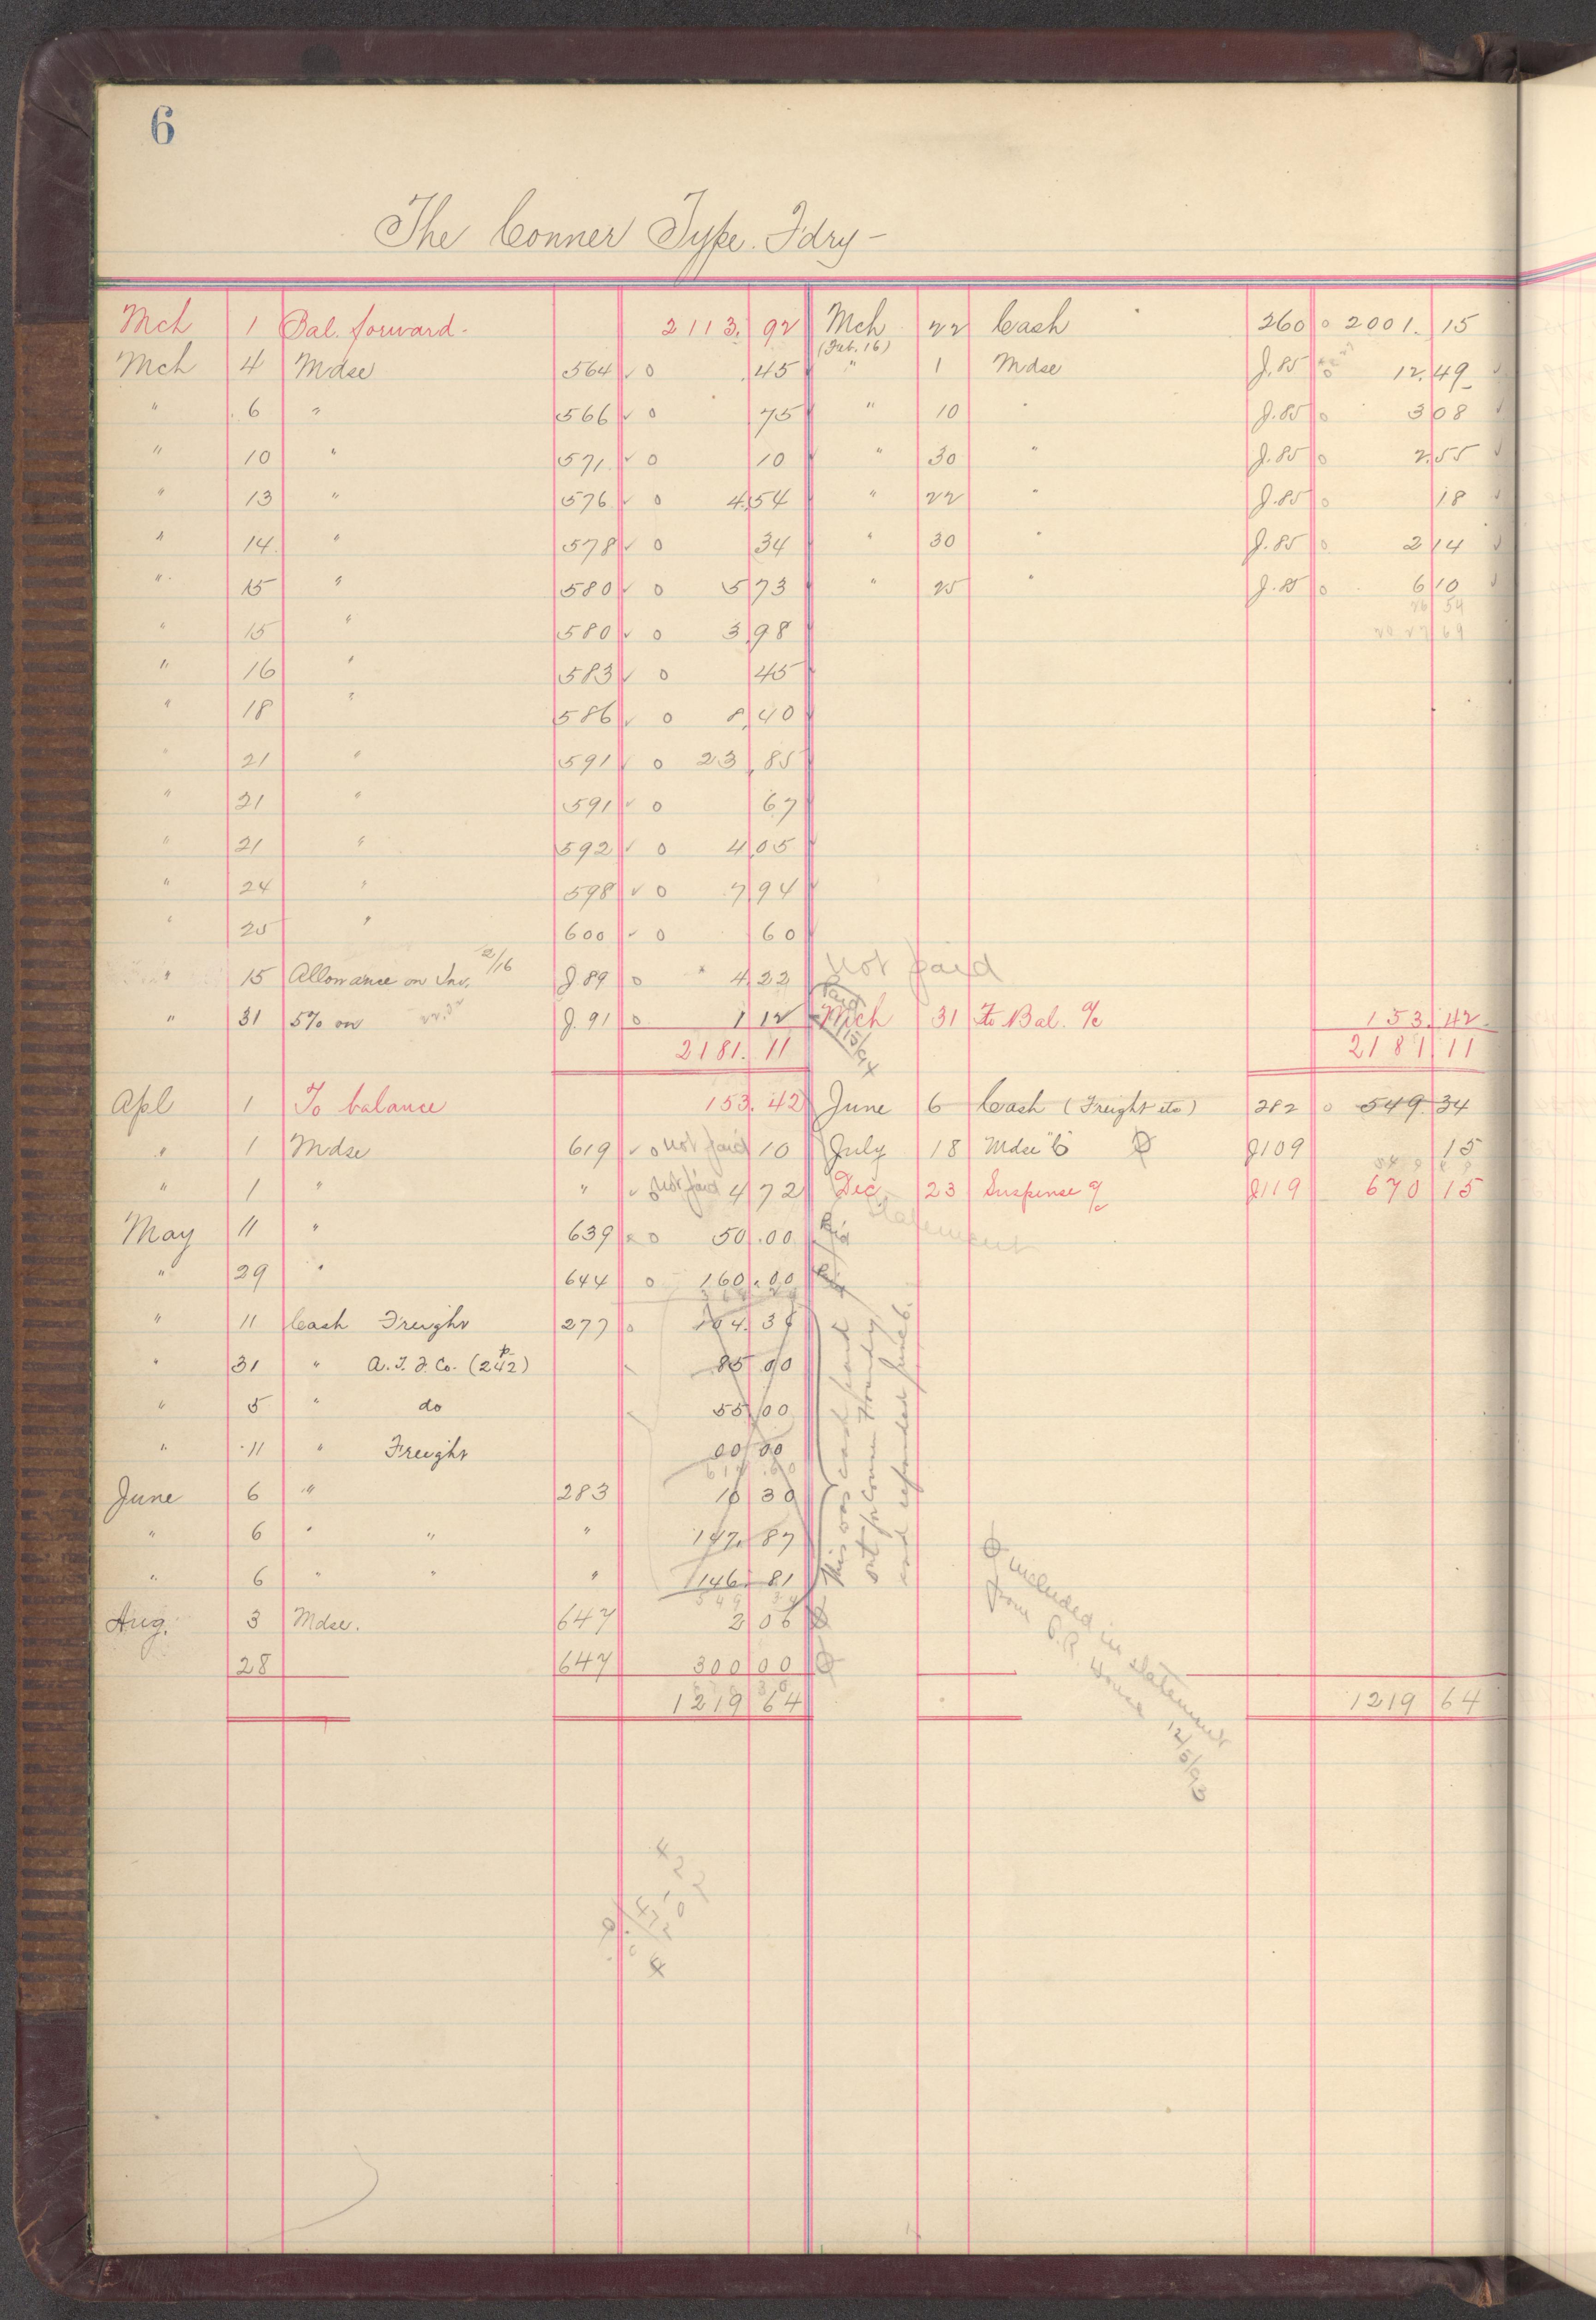 6
The Conner Type. F'dry -
Mch 1 Bal. forward - 2113. 92 Mch 22 Cash 260 o 2001. 15
Mch 4 Mdse 564 ✓ o .45 (Feb. 16) " 1 Mdse J. 85 o 12. 49
" 6 " 566 ✓ o 75 " 10 " J. 85 o 3 08
" 10 " 571 ✓ o 10 " 30 " J. 85 o 2. 55
" 13 " 576 ✓ o 4. 54 " 22 " J. 85 o 18
" 14 " 578 ✓ o 34 " 30 " J. 85 o 2 14
" 15 " 580 ✓ o 5 73 " 25 " J. 85 o 6 10
26 54
" 15 " 580 ✓ o 3 98 20 27 69
" 16 " 583 ✓ o 45
" 18 " 586 ✓ o 8 40
" 21 " 591 ✓ o 23 85
" 21 " 591 ✓ o 67
" 21 " 592 ✓ o 4 05
" 24 " 598 ✓ o 7 94
" 25 " 600 ✓ o 60
" 15 Allowance on Inv. 2/16 J 89 o 4 22 not paid
" 31 5% on J. 91 o 1 12 Mch 31 To Bal. a/c 153. 42
2181. 11 2181 11
Apl 1 To balance 153. 42 June 6 Cash (Freight etc) 282 o 549 34
" 1 Mdse 619 ✓ o not paid 10 July 18 Mdse "C" J109 15
" 1 " " ✓ o not paid 4 72 Dec 23 Suspense a/c J119 670 15
statement
May 11 " 639 o 50 . 00 Pd
" 29 " 644 o 160 . 00
" 11 Cash Freight 277 o 104. 36
" 31 " A. T. F. Co. (p 242) 85 00
" 5 " do 55 00
" 11 " Freight 00 00
June 6 " 283 10 30
" 6 " " " 147. 87
" 6 " " " 146. 81
This was cash paid
out for Conner Foundry
and refunded June 6.
Aug. 3 Mdse. 647 2 06
28 647 300 00
1219 64 1219 64
included in statement
from P. P. House 12/5/93